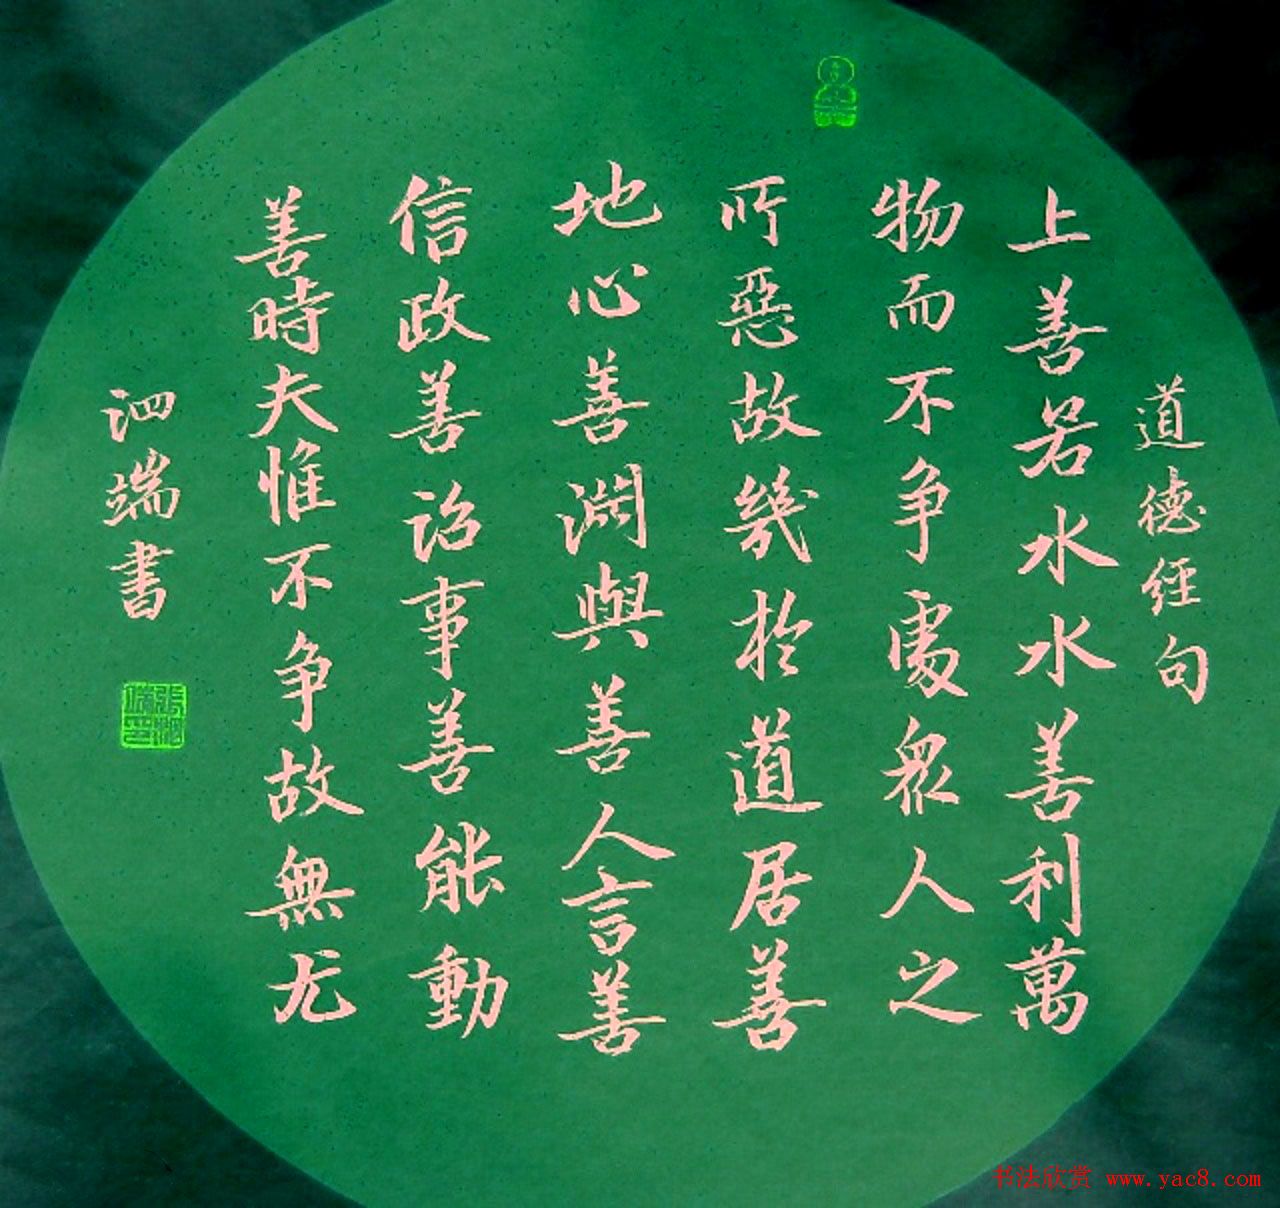 道德經句
上善若水水善利萬
物而不争處衆人之
所惡故幾於道居善
地心善淵與善人言善
信政善治事善能動
善時夫惟不争故無尤
泗端書
书法欣赏 www.yac8.com